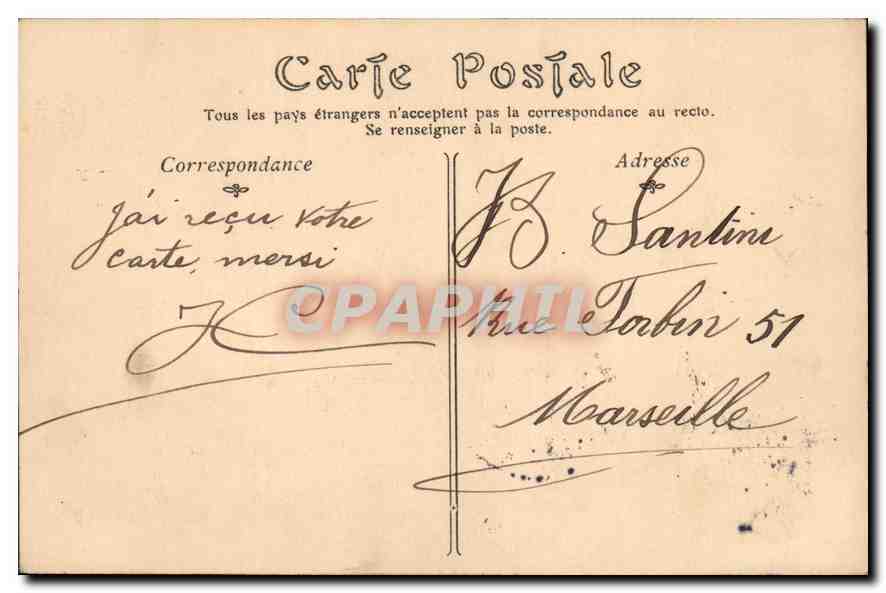 Carte Postale
Tous les pays étrangers n'acceptent pas la correspondance au recto.
Se renseigner à la poste.
Correspondance
J'ai reçu votre
carte, mersi
Adresse
JB. Santini
Rue Torbin 51
Marseille
CPAPHIL